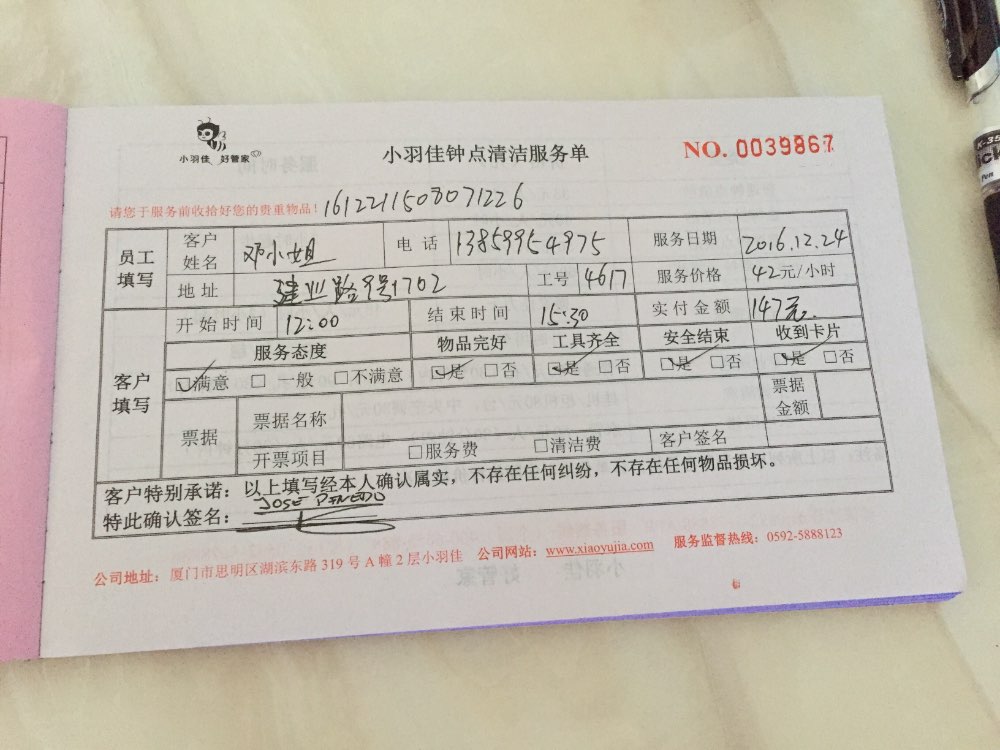 小羽佳 好管家
小羽佳钟点清洁服务单
NO. 0039867
请您于服务前收拾好您的贵重物品！ 1612211508071226
员工填写 客户姓名 邓小姐 电话 13859954975 服务日期 2016.12.24
地址 建业路9号1702 工号 4617 服务价格 42元/小时
客户填写 开始时间 12:00 结束时间 15:30 实付金额 147元
服务态度 物品完好 工具齐全 安全结束 收到卡片
☑满意 □一般 □不满意 ☑是 □否 ☑是 □否 ☑是 □否 ☑是 □否
票据 票据名称 票据金额
开票项目 □服务费 □清洁费 客户签名
客户特别承诺：以上填写经本人确认属实，不存在任何纠纷，不存在任何物品损坏。
特此确认签名： JOSE
公司地址：厦门市思明区湖滨东路319号A幢2层小羽佳 公司网站：www.xiaoyujia.com 服务监督热线：0592-5888123